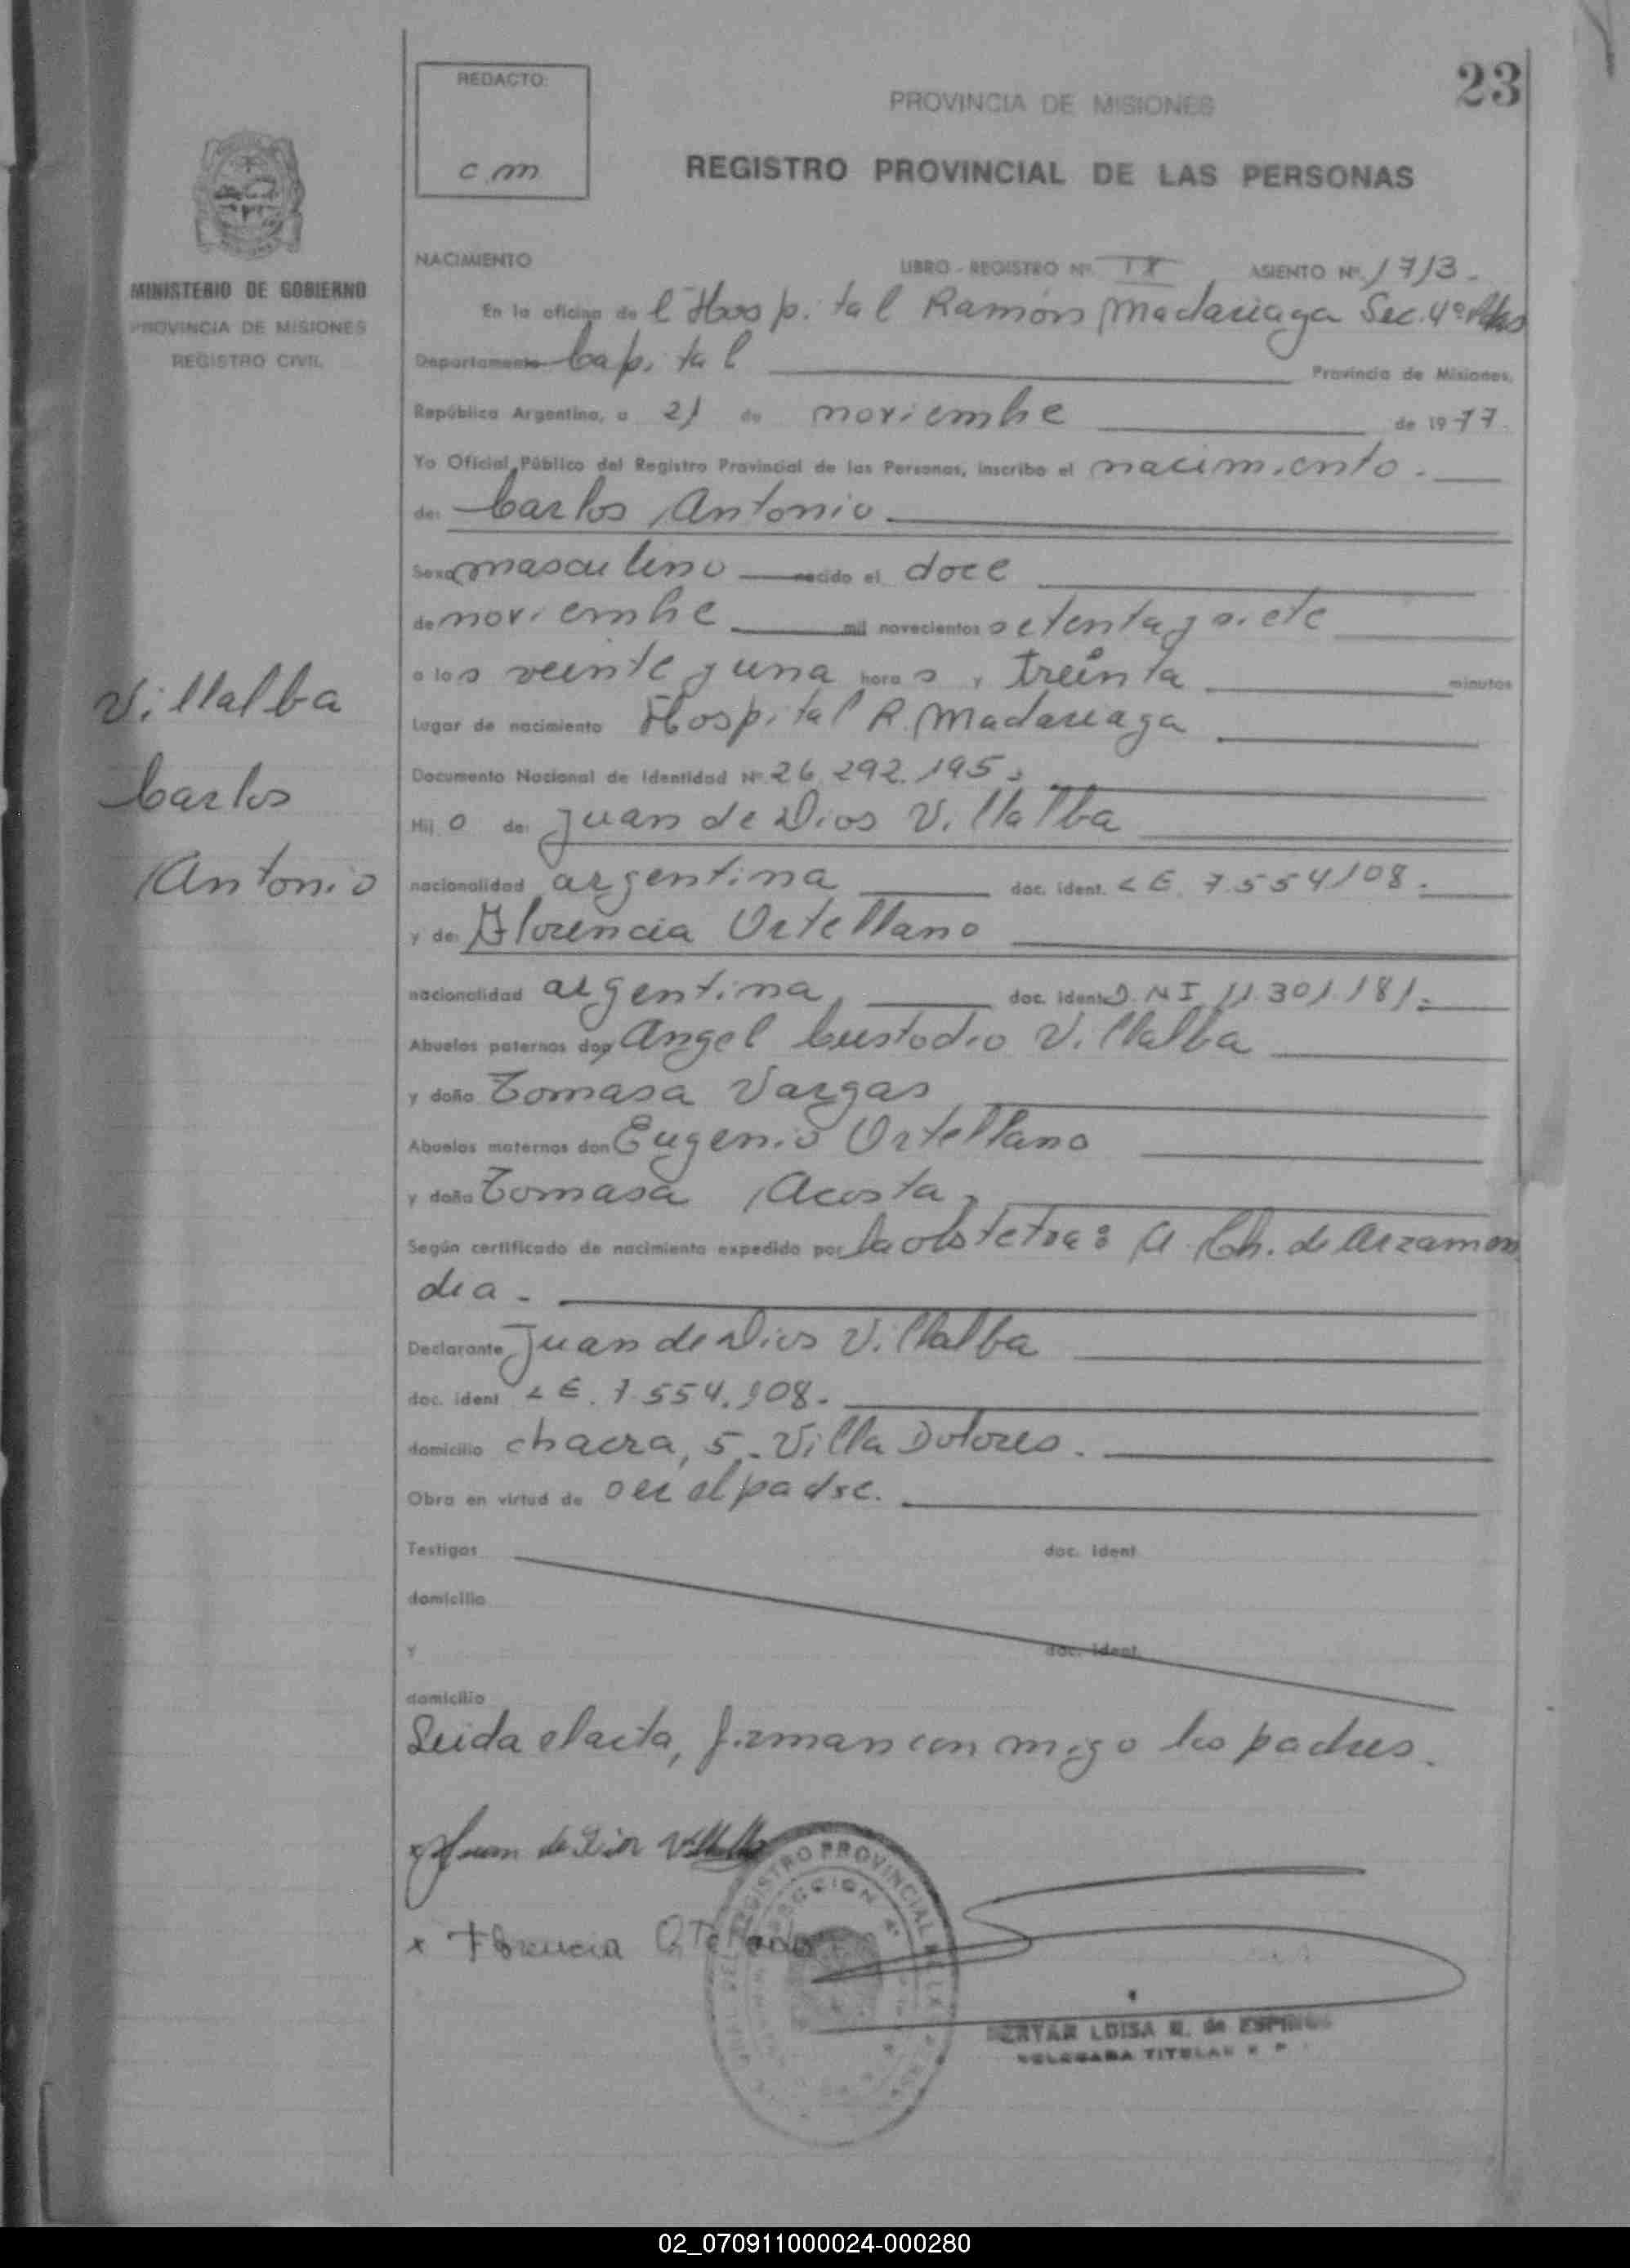 23
REDACTO:
c.m
PROVINCIA DE MISIONES
REGISTRO PROVINCIAL DE LAS PERSONAS
MINISTERIO DE GOBIERNO
PROVINCIA DE MISIONES
REGISTRO CIVIL
NACIMIENTO LIBRO - REGISTRO Nº ASIENTO Nº 1713.-
En la oficina de l Hospital Ramón Madariaga Sec. 4º Pdas
Departamento Capital Provincia de Misiones,
República Argentina, a 21 de noviembre de 1977.
Yo Oficial Público del Registro Provincial de las Personas, inscribo el nacimiento.
de: Carlos Antonio
Sexo masculino nacido el doce
de noviembre mil novecientos setenta y siete
a las veinte y una horas y treinta minutos
Lugar de nacimiento Hospital R. Madariaga
Documento Nacional de Identidad Nº 26.292.195.
Hijo de: Juan de Dios Villalba
nacionalidad argentina doc. ident. L E. 7.554.108.
y de: Florencia Ortellano
nacionalidad argentina, doc. ident. D.N I. 11.301.181.
Abuelos paternos don Angel Custodio Villalba
y doña Tomasa Vargas
Abuelos maternos don Eugenio Ortellano
y doña Tomasa Acosta,
Según certificado de nacimiento expedido por la obstetra: A. Ch. de Arzamen
dia.
Declarante Juan de Dios Villalba
doc. ident L E. 7.554.108.
domicilio chacra, 5.- Villa Dolores.
Obra en virtud de ser el padre.
Testigos doc. ident.
domicilio
y doc. ident.
domicilio
Leida el acta, firman con migo los padres.
Villalba
Carlos
Antonio
x Juan de Dios Villalba
x Florencia
REGISTRO PROVINCIAL DE LAS
SECCION 4ª
LUISA R. de
DELEGADA TITULAR
02_070911000024-000280